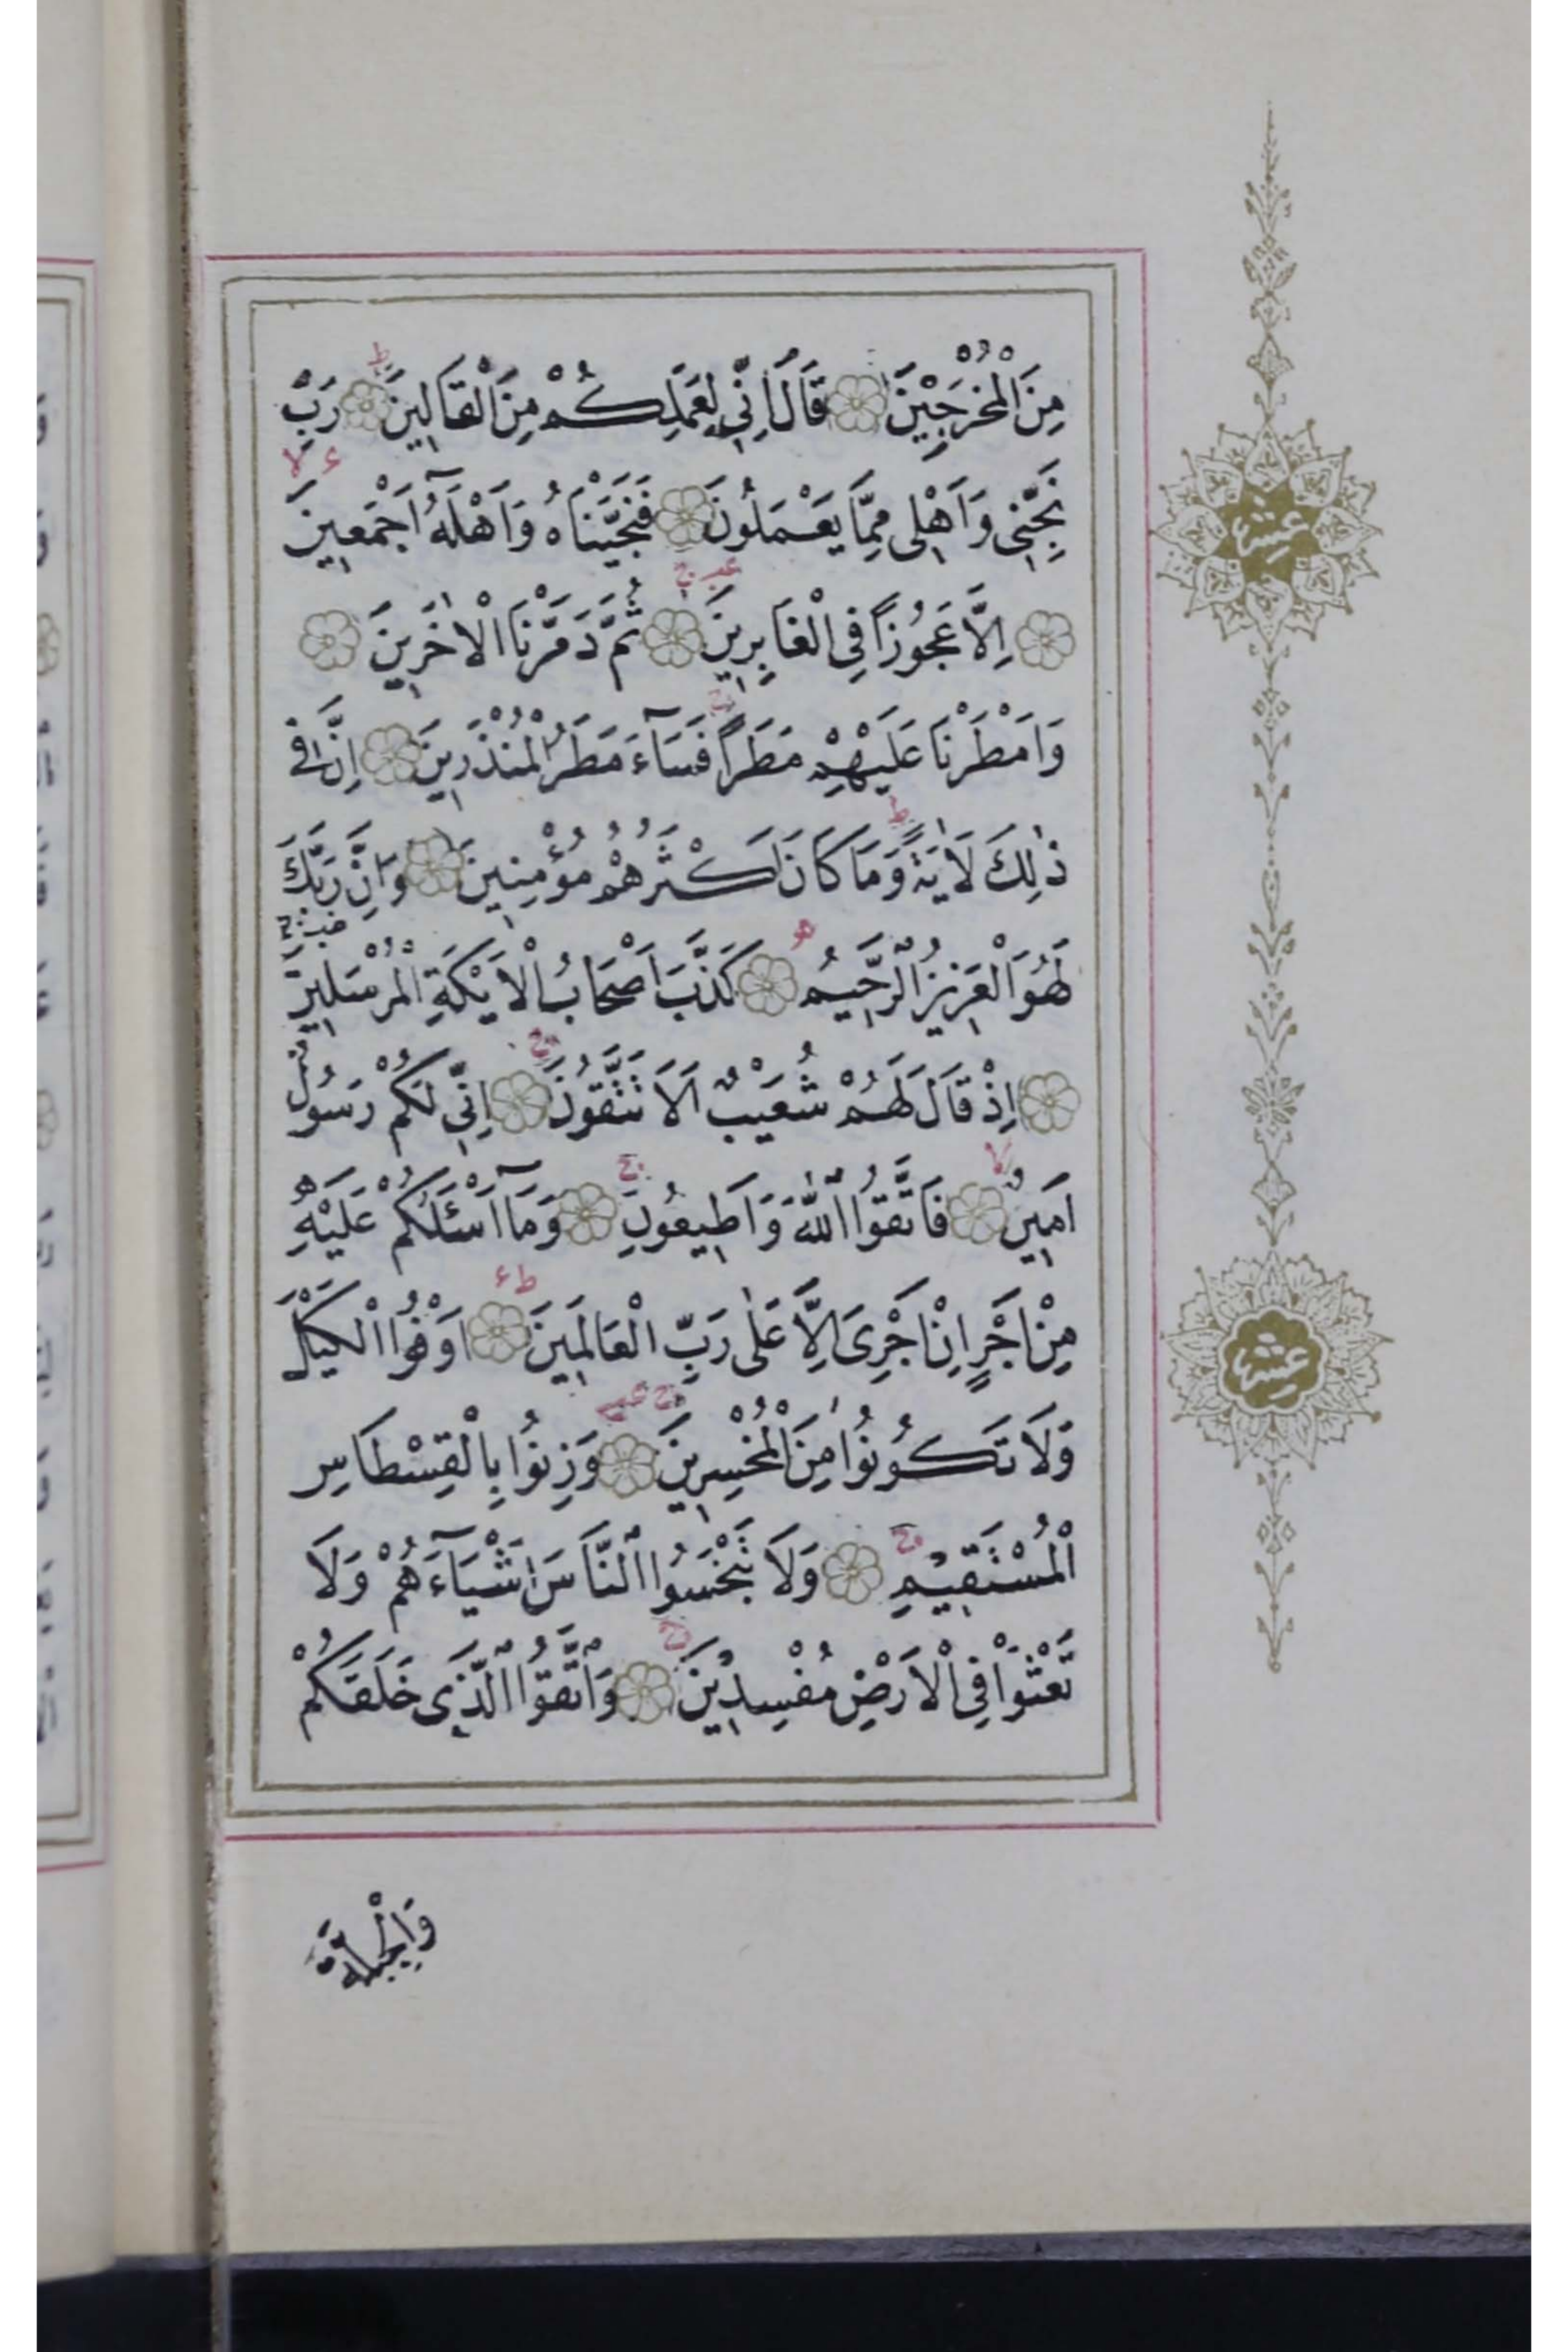 مِنَ الْمُخْرَجِينَ قَالَ اِنِّي لِعَمَلِكُمْ مِنَ الْقَالِينَ رَبِّ
نَجِّنِي وَاَهْلِي مِمَّا يَعْمَلُونَ فَنَجَّيْنَاهُ وَاَهْلَهُٓ اَجْمَعِينَ
اِلَّا عَجُوزًا فِي الْغَابِرِينَ ثُمَّ دَمَّرْنَا الْاٰخَرِينَ
وَاَمْطَرْنَا عَلَيْهِمْ مَطَرًا فَسَآءَ مَطَرُ الْمُنْذَرِينَ اِنَّ فِي
ذٰلِكَ لَاٰيَةً وَمَا كَانَ اَكْثَرُهُمْ مُؤْمِنِينَ وَاِنَّ رَبَّكَ
لَهُوَ الْعَزِيزُ الرَّحِيمُ كَذَّبَ اَصْحَابُ الْاَيْكَةِ الْمُرْسَلِينَ
اِذْ قَالَ لَهُمْ شُعَيْبٌ اَلَا تَتَّقُونَ اِنِّي لَكُمْ رَسُولٌ
اَمِينٌ فَاتَّقُوا اللّٰهَ وَاَطِيعُونِ وَمَآ اَسْئَلُكُمْ عَلَيْهِ
مِنْ اَجْرٍ اِنْ اَجْرِيَ اِلَّا عَلٰى رَبِّ الْعَالَمِينَ اَوْفُوا الْكَيْلَ
وَلَا تَكُونُوا مِنَ الْمُخْسِرِينَ وَزِنُوا بِالْقِسْطَاسِ
الْمُسْتَقِيمِ وَلَا تَبْخَسُوا النَّاسَ اَشْيَآءَهُمْ وَلَا
تَعْثَوْا فِي الْاَرْضِ مُفْسِدِينَ وَاتَّقُوا الَّذِي خَلَقَكُمْ
وَالْجِبِلَّةَ
عشر
عشر